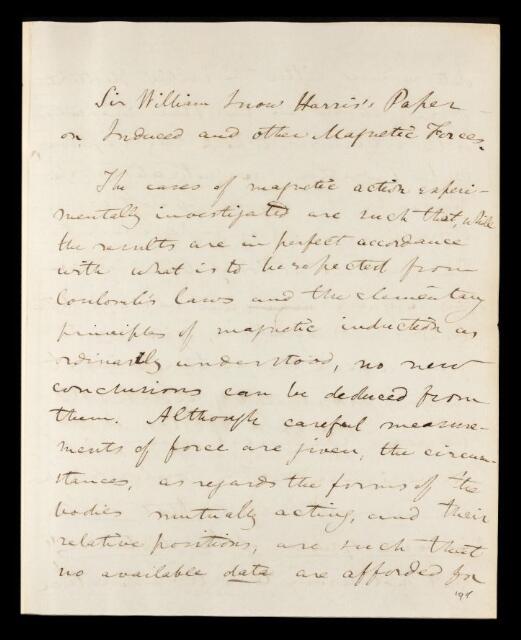 Sir William Snow Harris's Paper
on Induced and other Magnetic Forces.
The cases of magnetic action experi-
mentally investigated are such that, while
the results are in perfect accordance
with what is to be expected from
Coulomb's laws and the elementary
principles of magnetic induction as
ordinarily understood, no new
conclusions can be deduced from
them. Although careful measure-
ments of force are given, the circum-
stances, as regards the forms of the
bodies mutually acting, and their
relative positions, are such that
no available data are afforded for